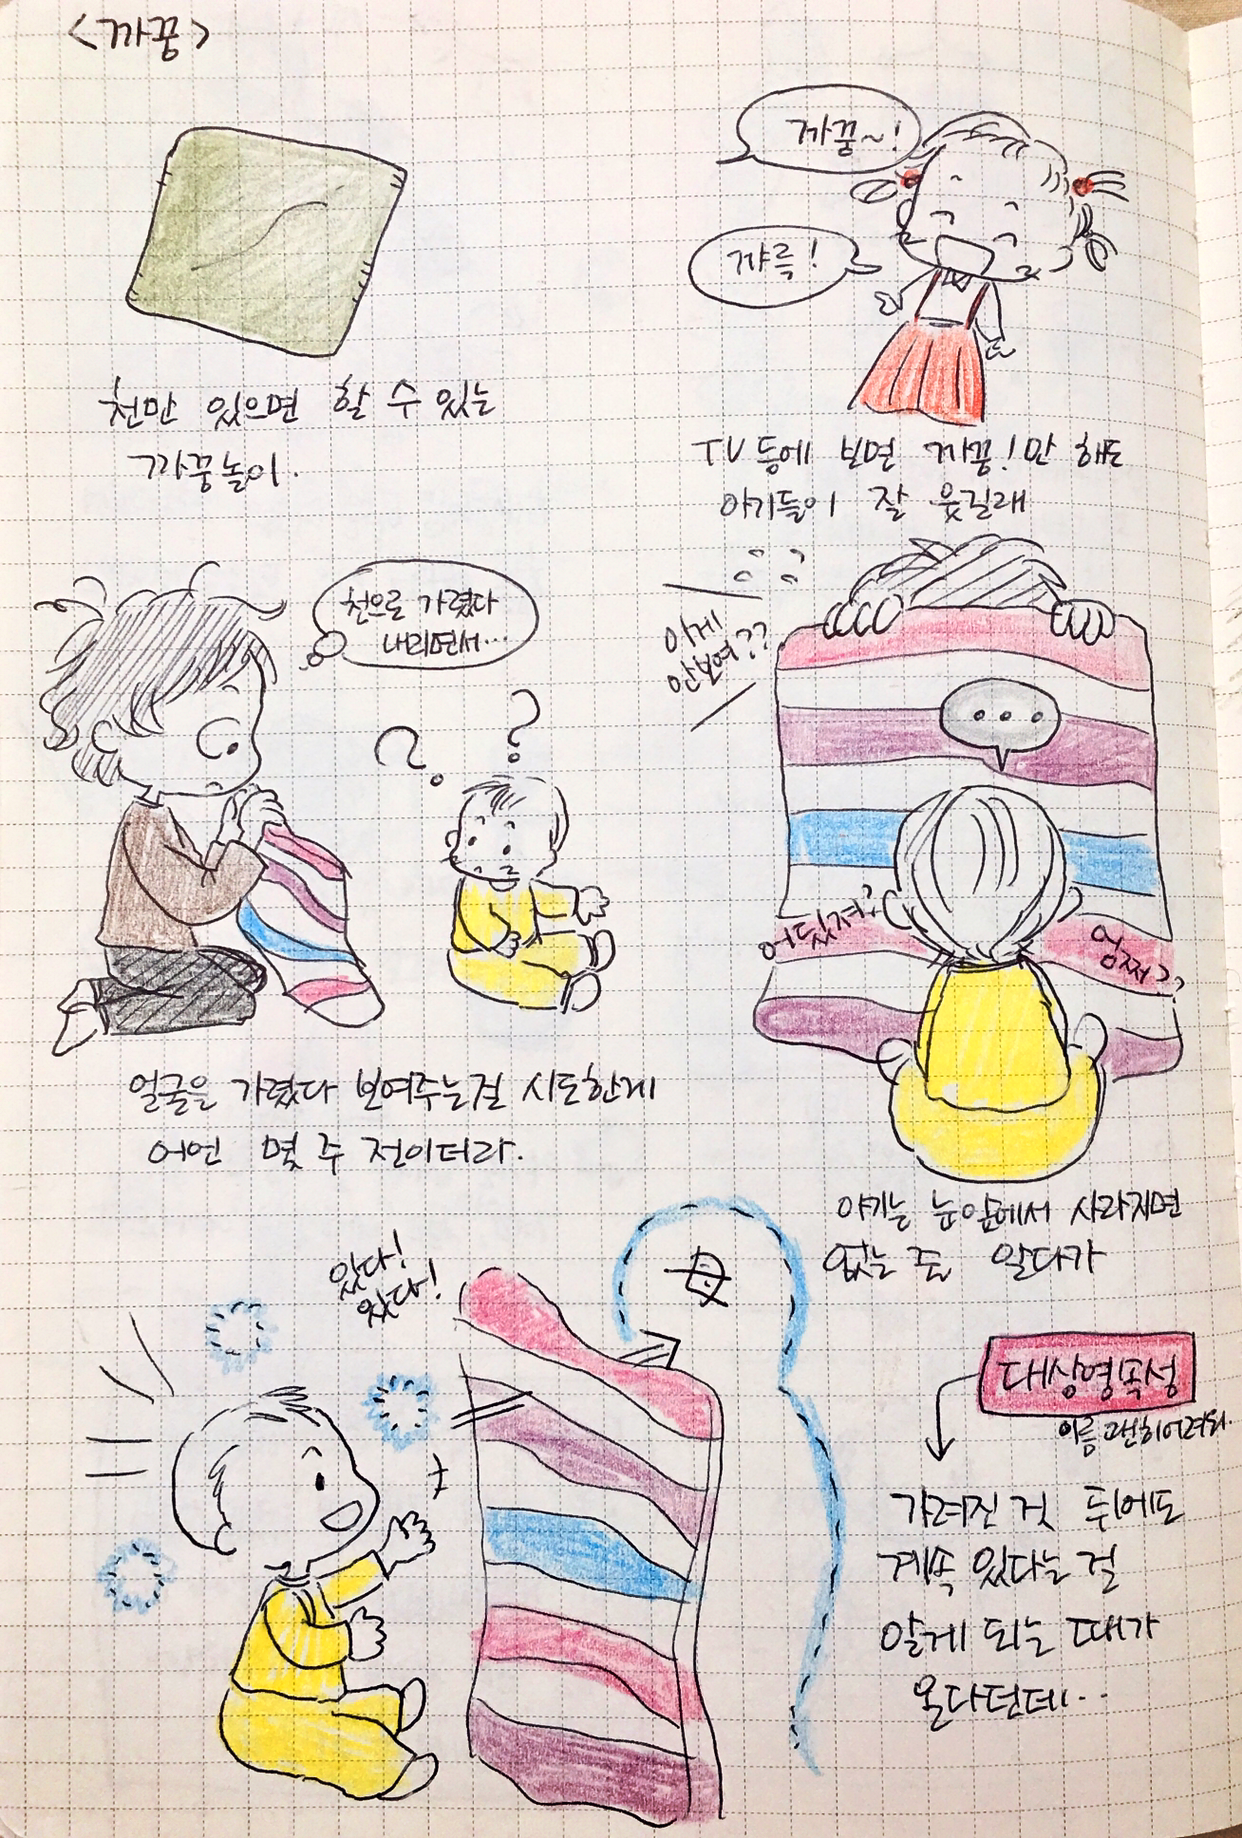 <까꿍>
천만 있으면 할 수 있는
까꿍놀이.
까꿍~!
꺄륵!
TV 등에 보면 까꿍!만 해도
아기들이 잘 웃길래
천으로 가렸다
내리면서...
? ?
얼굴을 가렸다 보여주는걸 시도한게
어언 몇 주 전이더라.
이게
안보여??
...
어딨져?
엄쪄??
아기는 눈앞에서 사라지면
없는 줄 알다가
있다!
있다!
母
대상영속성
이름 괜히 어려워.
가려진 것 뒤에도
계속 있다는 걸
알게 되는 때가
온다던데...